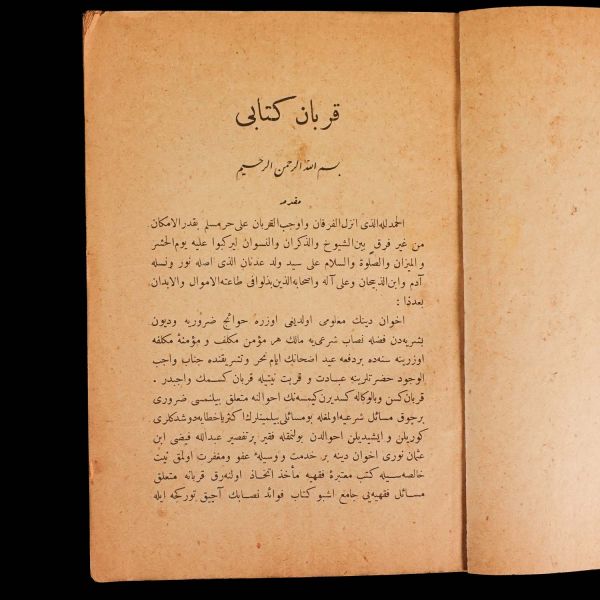 قربان كتابى
بسم الله الرحمن الرحيم
مقدمه
الحمد لله الذى انزل الفرقان واوجب القربان على حر مسلم بقدر الامكان
من غير فرق بين الشيوخ والذكران والنسوان ليركبوا عليه يوم الحشر
والميزان والصلوة والسلام على سيد ولد عدنان الذى اصله نور ونسله
آدم وابن الذبيحان وعلى آله واصحابه الذين بذلوا فى طاعته الاموال والابدان
بعدذا :
اخوان دينك معلومى اولديغى اوزره حوائج ضروريه وديون
بشريه دن فضله نصاب شرعى يه مالك هر مؤمن مكلف و مؤمنهٔ مكلفه
اوزرينه سنه ده بر دفعه عيد اضحانك ايام نحر وتشريقنده جناب واجب
الوجود حضرتلرينه عبادت و قربت نيتيله قربان كسمك واجبدر .
قربان كسن وبالوكاله كسديرن كيمسه نك احوالنه متعلق بيلنمسى ضرورى
برچوق مسائل شرعيه اولمغله بو مسائلى بيلمينلرك اكثريا خطايه دوشدكلرى
كوريلن و ايشيديلن احوالدن بولنمغله فقير پرتقصير عبدالله فيضى ابن
عثمان نورى اخوان دينه بر خدمت و وسيلهٔ عفو ومغفرت اولمق نيت
خالصه سيله كتب معتبرهٔ فقهيه مأخذ اتخاذ اولنه رق قربانه متعلق
مسائل فقهيه يى جامع اشبو كتاب فوائد نصابك آچيق توركجه ايله